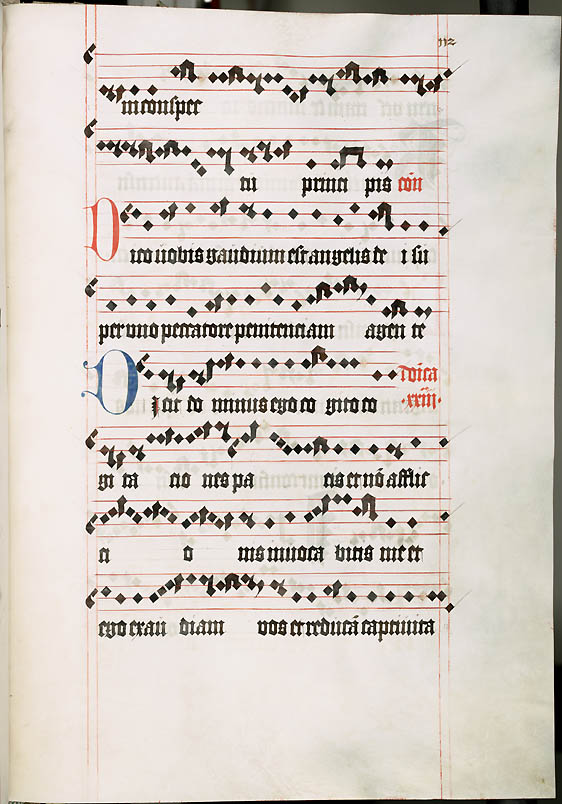 112
in conspec
tu princi pis cōn
Dico vobis gaudium est angelis de i su
per vno peccatore penitenciam agen te
Dicit do minus ego co gito co
dn̄ica
.xxiii.
gi ta cio nes pa cis et nō afflic
ci o nis inuoca bitis me et
ego exau diam vos et reducā captiuita